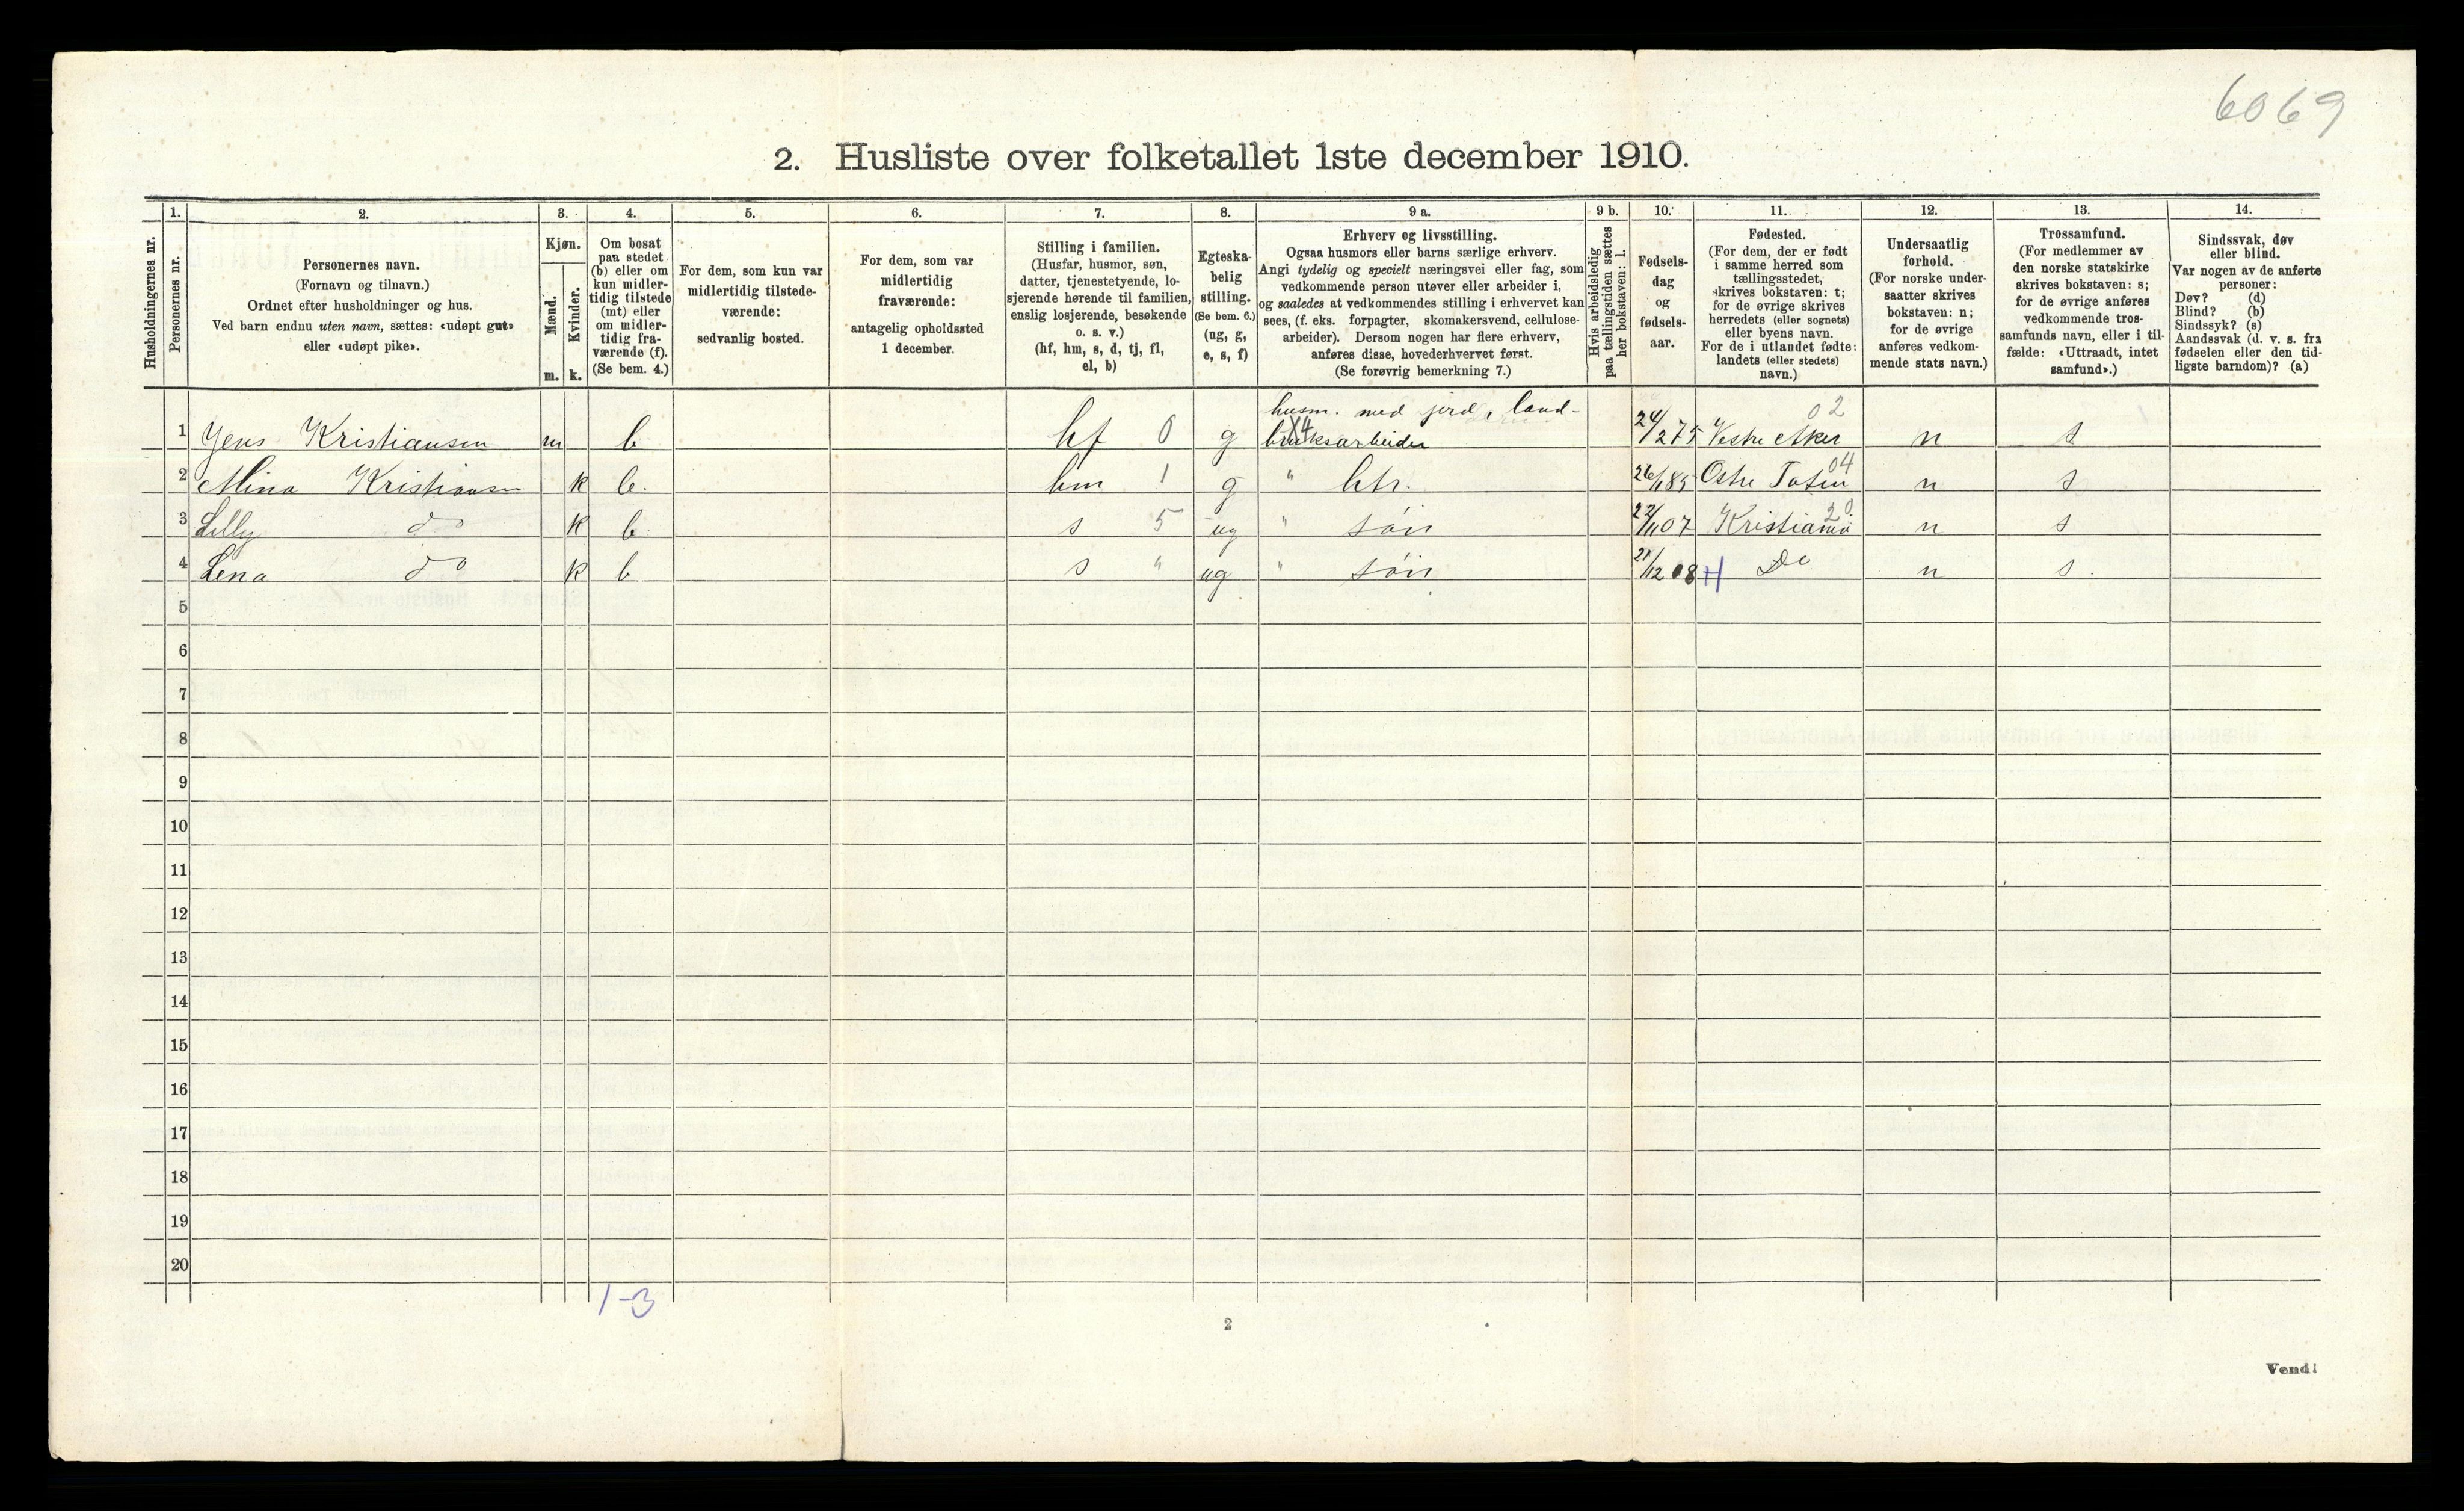 6069
2. Husliste over folketallet 1ste december 1910.
Husholdningernes nr.
1.
Personernes nr.
2.
Personernes navn.
(Fornavn og tilnavn.)
Ordnet efter husholdninger og hus.
Ved barn endnu uten navn, sættes: «udøpt gut»
eller «udøpt pike».
3.
Kjøn.
Mænd.
Kvinder.
m. k.
4.
Om bosat
paa stedet
(b) eller om
kun midler-
tidig tilstede
(mt) eller
om midler-
tidig fra-
værende (f).
(Se bem. 4.)
5.
For dem, som kun var
midlertidig tilstede-
værende:
sedvanlig bosted.
6.
For dem, som var
midlertidig
fraværende:
antagelig opholdssted
1 december.
7.
Stilling i familien.
(Husfar, husmor, søn,
datter, tjenestetyende, lo-
sjerende hørende til familien,
enslig losjerende, besøkende
o. s. v.)
(hf, hm, s, d, tj, fl,
el, b)
8.
Egteska-
belig
stilling.
(Se bem. 6.)
(ug, g,
e, s, f)
9 a.
Erhverv og livsstilling.
Ogsaa husmors eller barns særlige erhverv.
Angi tydelig og specielt næringsvei eller fag, som
vedkommende person utøver eller arbeider i,
og saaledes at vedkommendes stilling i erhvervet kan
sees, (f. eks. forpagter, skomakersvend, cellulose-
arbeider). Dersom nogen har flere erhverv,
anføres disse, hovederhvervet først.
(Se forøvrig bemerkning 7.)
9 b.
Hvis arbeidsledig
paa tællingstiden sættes
her bokstaven: l.
10.
Fødsels-
dag
og
fødsels-
aar.
11.
Fødested.
(For dem, der er født
i samme herred som
tællingsstedet,
skrives bokstaven: t;
for de øvrige skrives
herredets (eller sognets)
eller byens navn.
For de i utlandet fødte:
landets (eller stedets)
navn.)
12.
Undersaatlig
forhold.
(For norske under-
saatter skrives
bokstaven: n;
for de øvrige
anføres vedkom-
mende stats navn.)
13.
Trossamfund.
(For medlemmer av
den norske statskirke
skrives bokstaven: s;
for de øvrige anføres
vedkommende tros-
samfunds navn, eller i til-
fælde: «Uttraadt, intet
samfund».)
14.
Sindssvak, døv
eller blind.
Var nogen av de anførte
personer:
Døv? (d)
Blind? (b)
Sindssyk? (s)
Aandssvak (d. v. s. fra
fødselen eller den tid-
ligste barndom)? (a)
husm. med jord, land- 02
1 Jens Kristiansen m b hf 0 g X4 bruksarbeider 24/2 75 Vestre Aker n s
2 Mina Kristiansen k b. hm 1 g " htr. 26/1 85 Østre Toten 04 n s
3 Lilly do k b s 5 ug " søn 22/11 07 Kristiania 20 n s
4 Lena do k b s " ug " søn 21/12 08 H Do n s.
5
6
7
8
9
10
11
12
13
14
15
16
17
18
19
20
1-3
2
Vend!